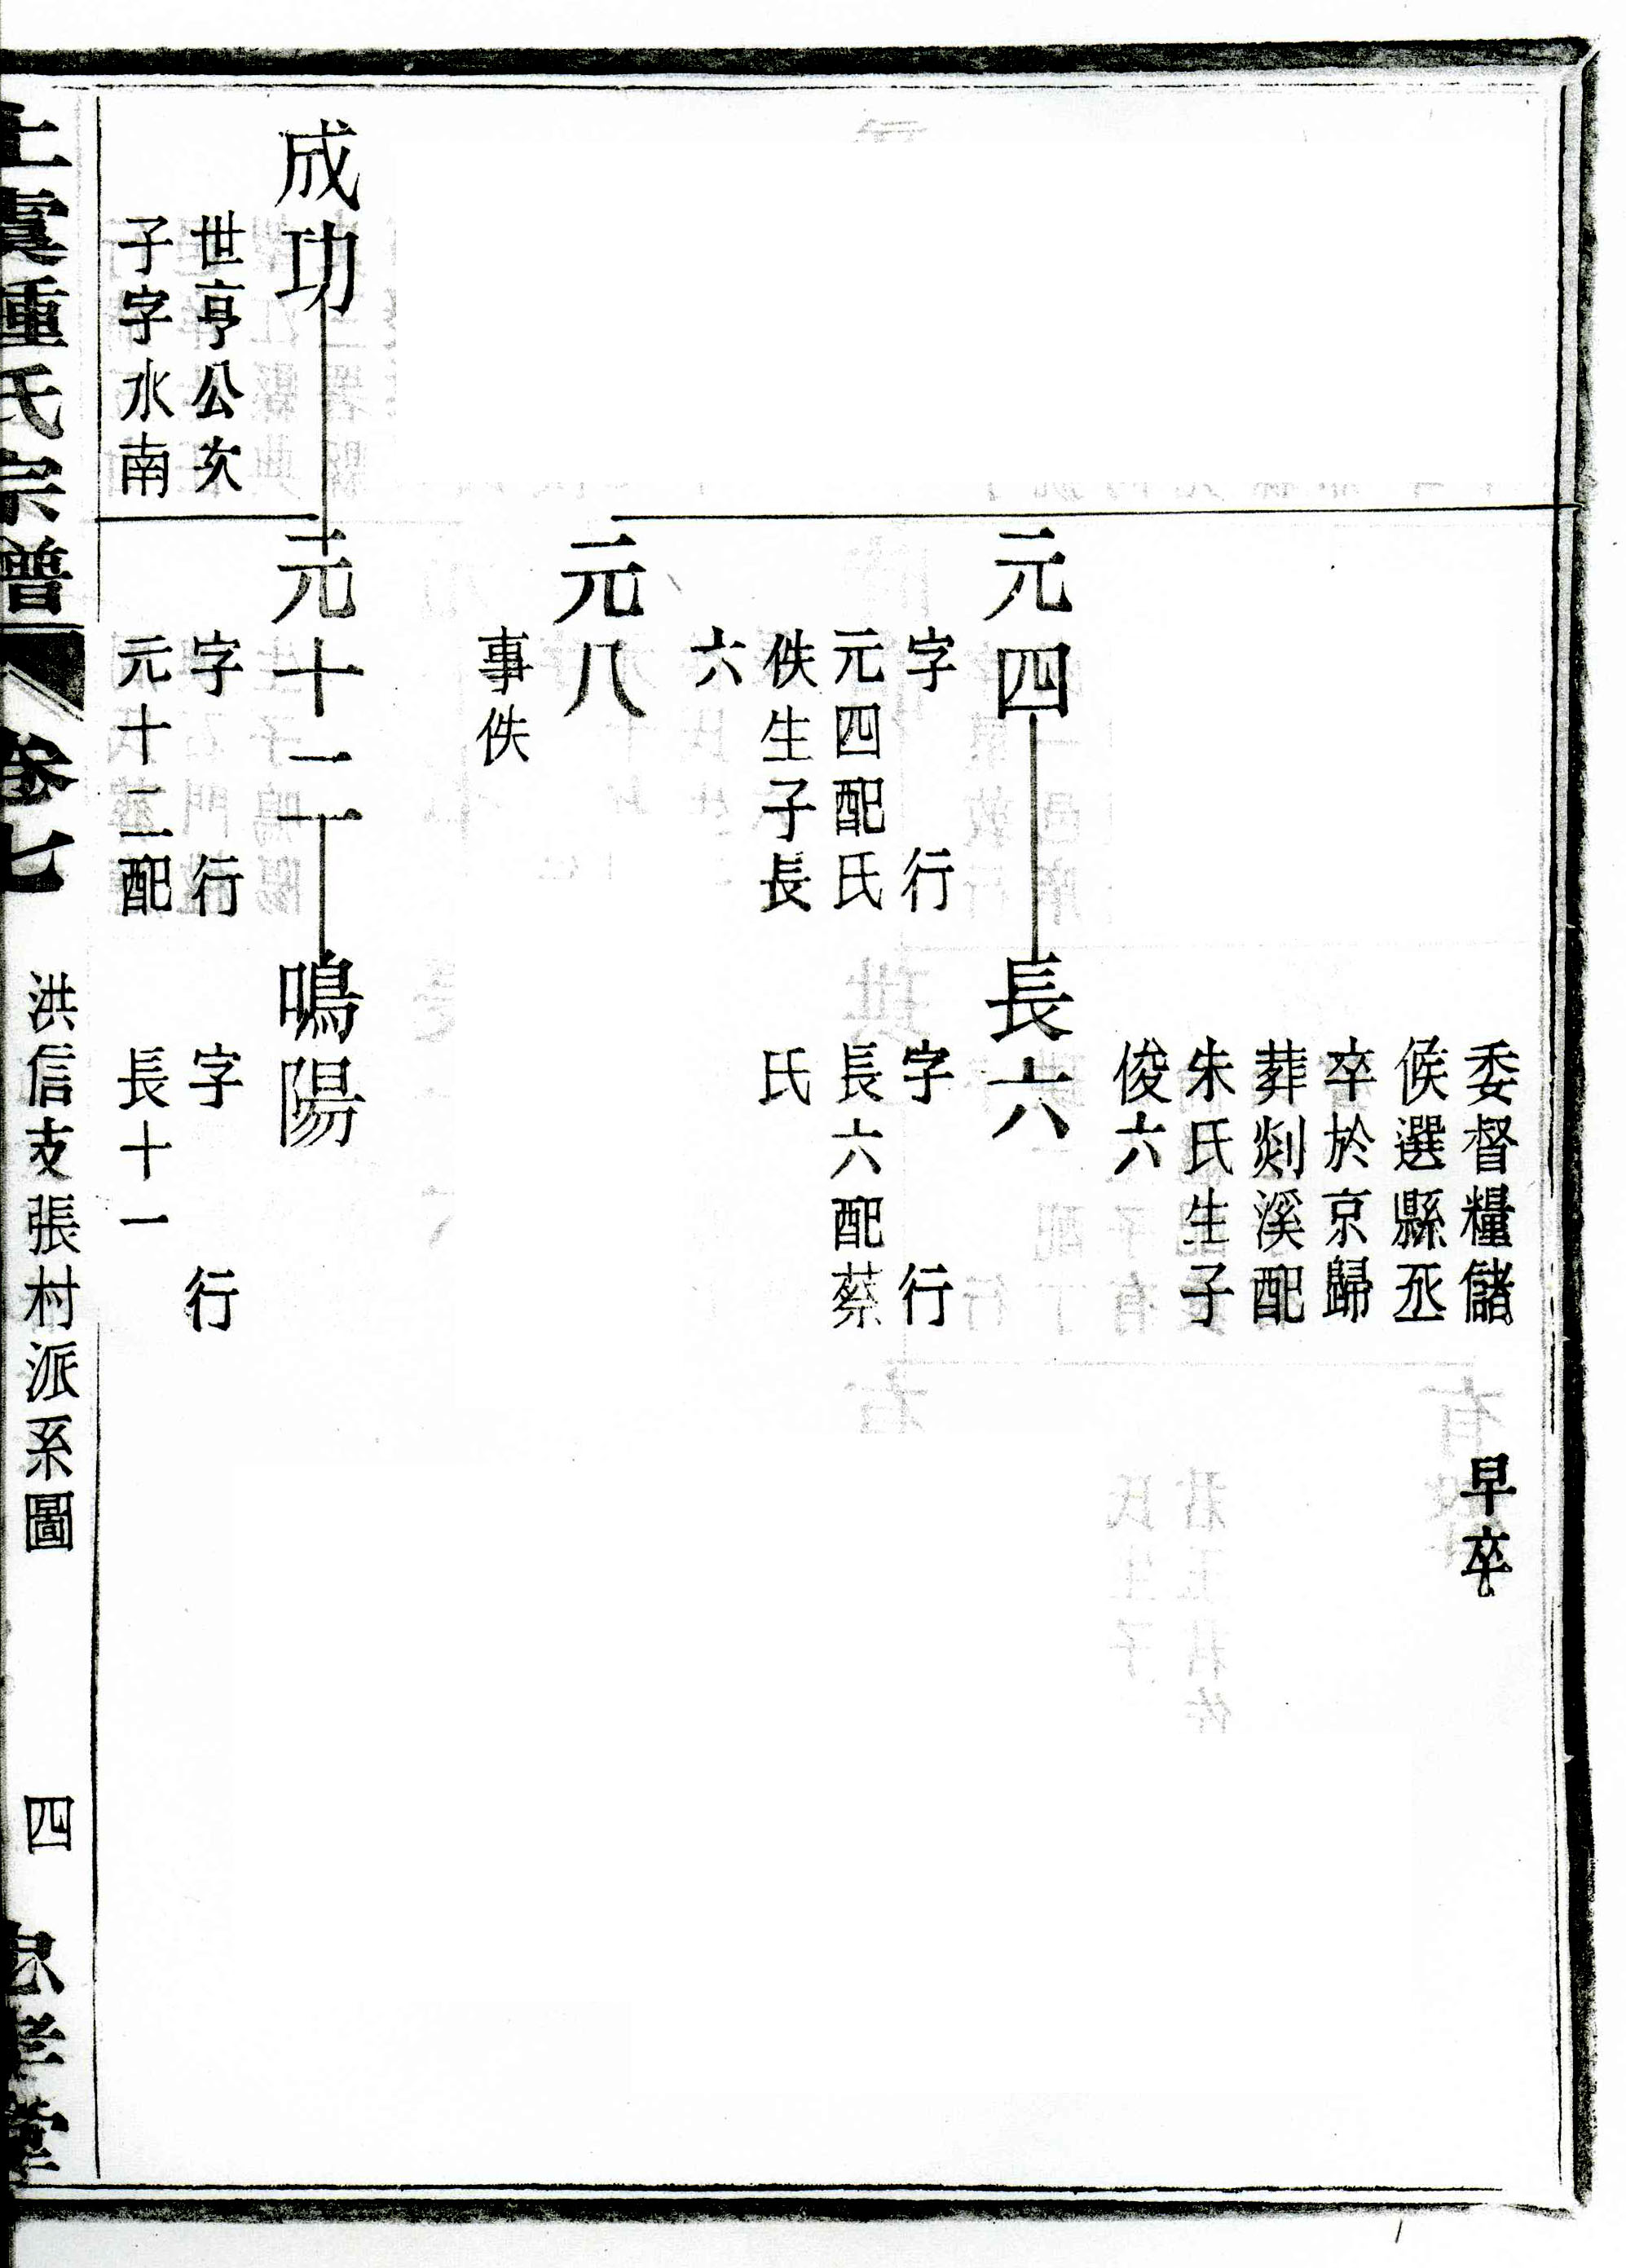 早卒
委督糧儲
候選縣丞
卒於京歸
葬剡溪配
朱氏生子
俊六
元四
長六
字 行
元四配氏
佚生子長
六
字 行
長六配蔡
氏
元八
事佚
成功
元十二
鳴陽
世亨公次
子字水南
字 行
元十二配
字 行
長十一
上虞種氏宗譜
卷七
洪信支張村派系圖
四
忠孝堂